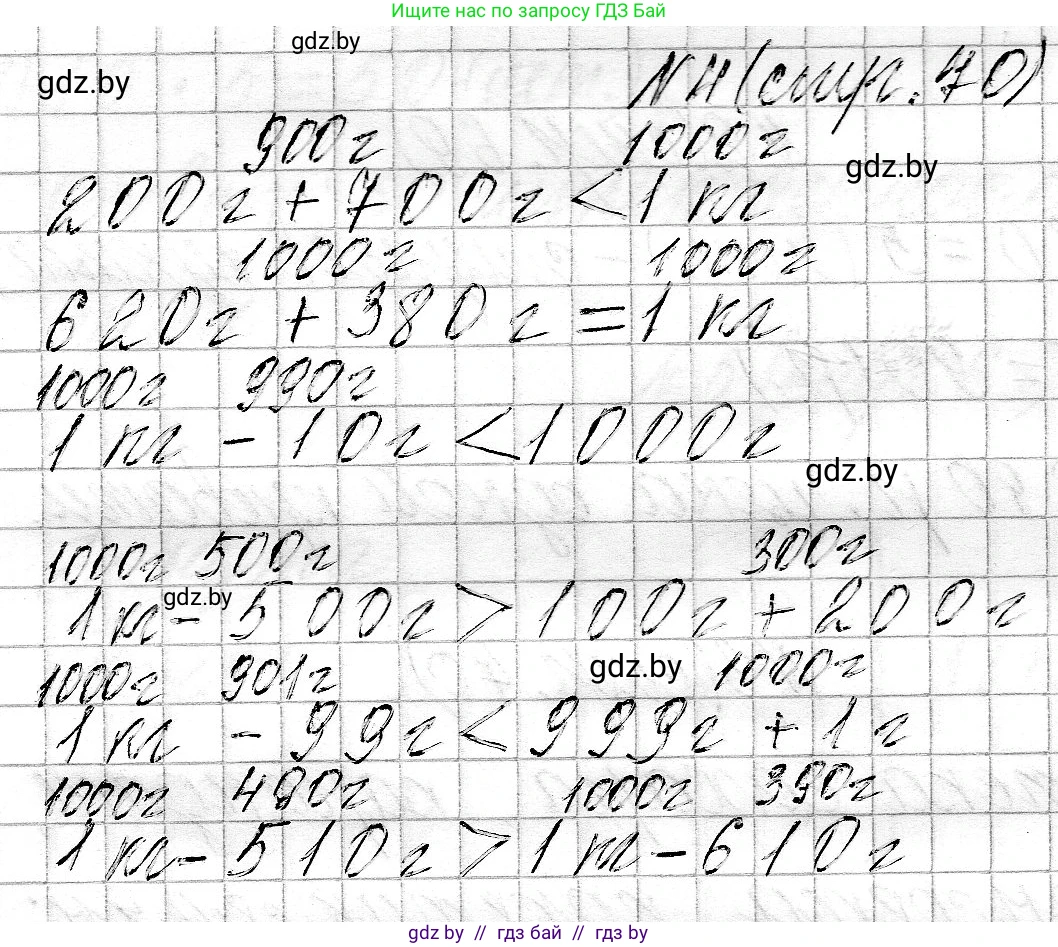 Ищите нас по запросу ГДЗ Бай
gdz.by
gdz.by
N 4 (стр. 40)
900г 1000г
gdz.by
200г + 700г < 1 кг
1000г 1000г
620г + 380г = 1 кг
1000г 990г
1 кг - 10г < 1000г
gdz.by
1000г 500г 300г
gdz.by
1 кг - 500г > 100г + 200г
1000г 901г gdz.by 1000г
1 кг - 99г < 999г + 1г
1000г 490г 1000г 390г
1 кг - 510г > 1 кг - 610г
gdz.by // гдз бай // gdz.by